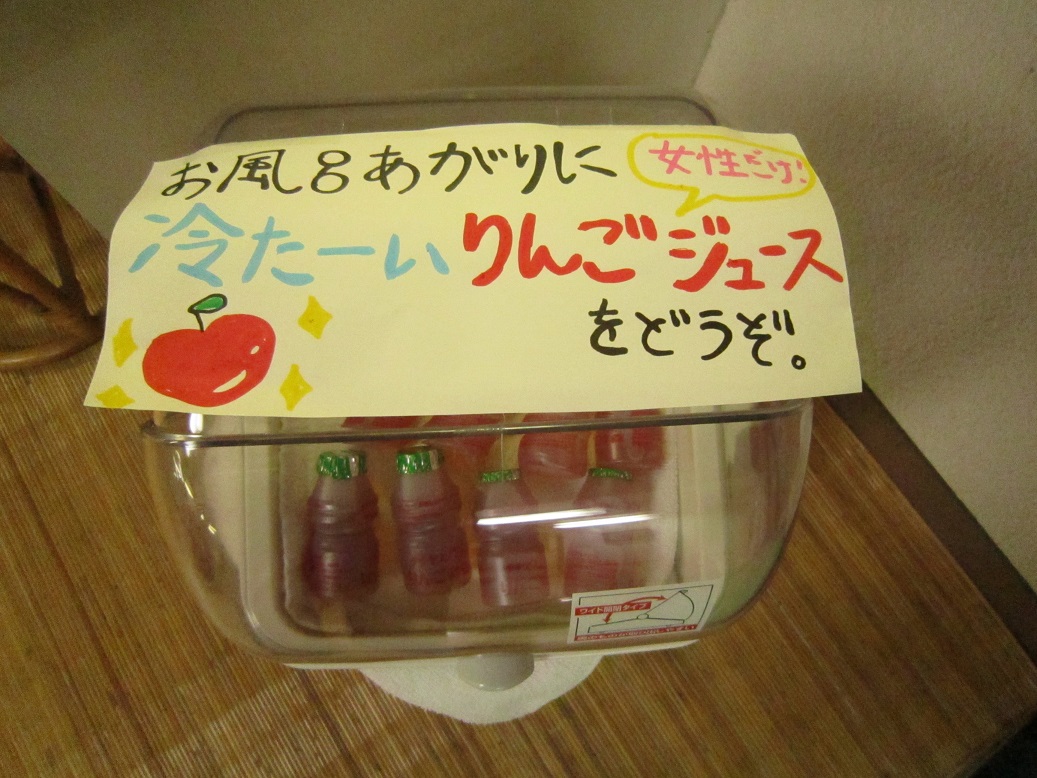 お風呂あがりに
女性だけ!
冷たーいりんごジュース
をどうぞ。
ワイド開閉タイプ